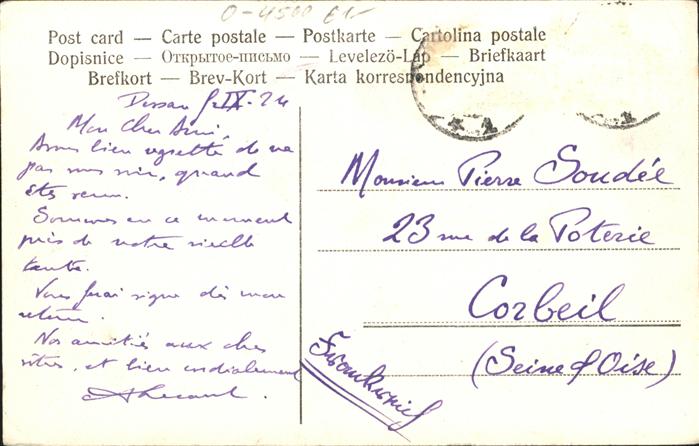 0-4500 El-
Post card — Carte postale — Postkarte — Cartolina postale
Dopisnice — Открытое-письмо — Levelezö-Lap — Briefkaart
Brefkort — Brev-Kort — Karta korrespondencyjna
IX-24
Mon cher Ami,
Avons bien regretté de ne
pas vous voir, quand
êtes venu.
Sommes en ce moment
près de notre vieille
tante.
Vous ferai signe dès mon
retour.
Nos amitiés aux chers
vôtres, et bien cordialement
Monsieur Pierre Soudée
23 rue de la Poterie
Corbeil
(Seine & Oise)